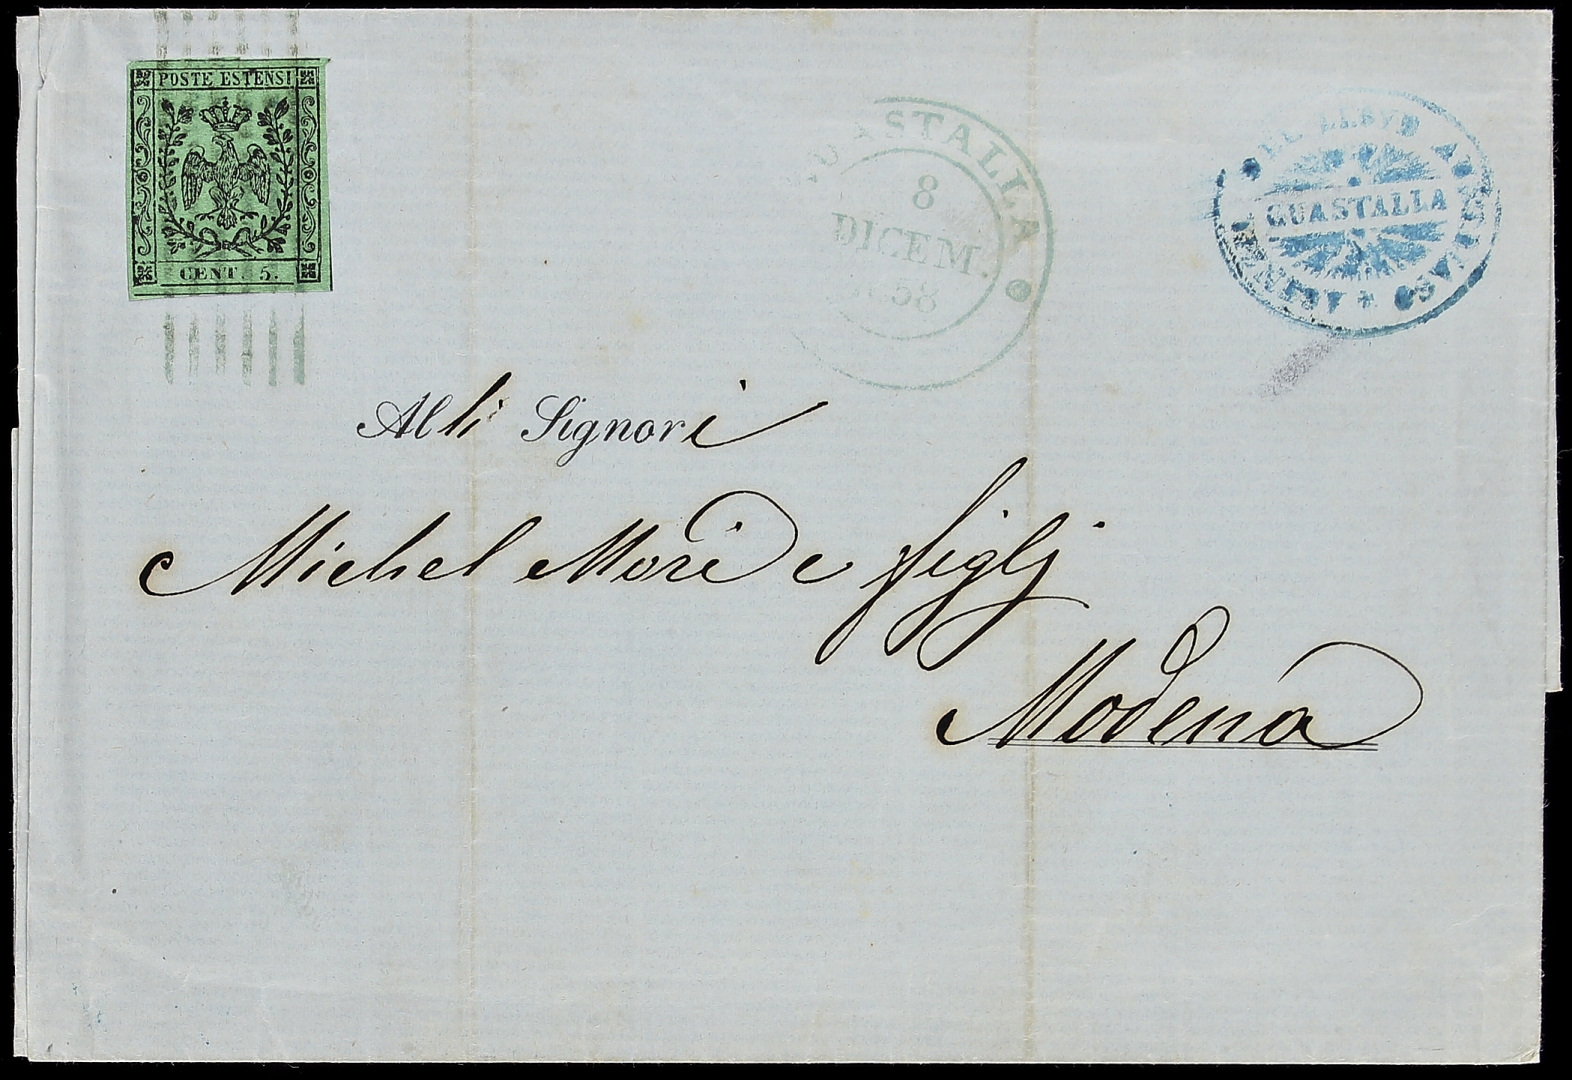 POSTE ESTENSI
CENT. 5.
GUASTALLA
8
DICEM.
58
GUASTALLA
Alli Signori
Michel Morè e figlj
Modena